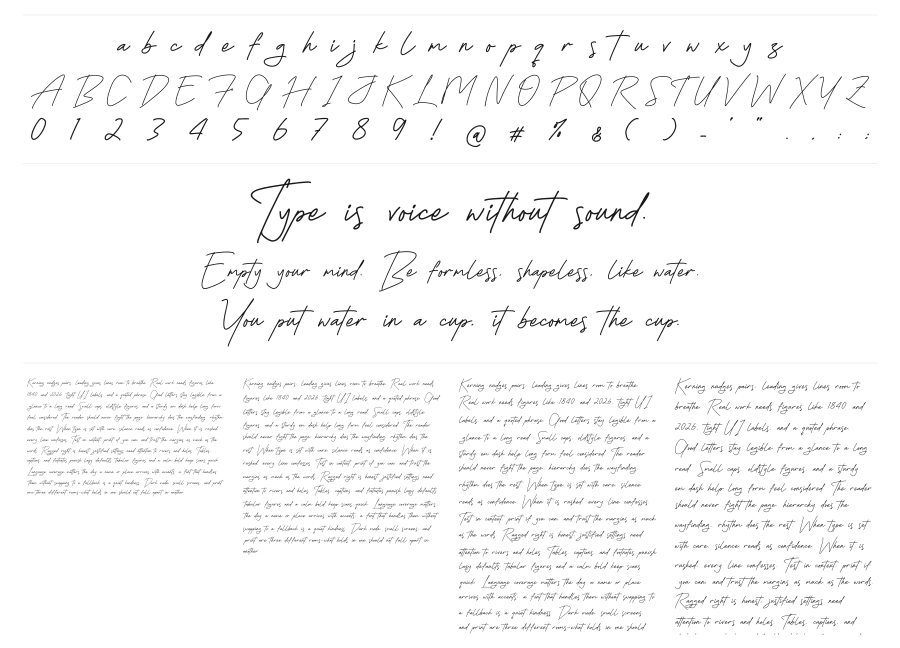 a b c d e f g h i j k l m n o p q r s t u v w x y z
A B C D E F G H I J K L M N O P Q R S T U V W X Y Z
0 1 2 3 4 5 6 7 8 9 ! @ # % & ( ) - ' " . , : ;
Type is voice without sound.
Empty your mind. Be formless, shapeless, like water.
You put water in a cup, it becomes the cup.
Kerning nudges pairs, leading gives lines room to breathe. Real work needs figures like
1840 and 2026, tight UI labels, and a quoted phrase. Good letters stay legible from a
glance to a long read. Small caps, oldstyle figures, and a sturdy en dash help long form
feel considered. The reader should never fight the page; hierarchy does the wayfinding, rhythm
does the rest. When type is set with care, silence reads as confidence. When it is rushed,
every line confesses. Test in context, print if you can, and trust the margins as much as the
words. Ragged right is honest; justified settings need attention to rivers and holes. Tables,
captions, and footnotes punish lazy defaults; tabular figures and a calm bold keep scans quick.
Language coverage matters the day a name or place arrives with accents; a font that handles
them without swapping to a fallback is a quiet kindness. Dark mode, small screens, and print
are three different rooms—what holds in one should not fall apart in another.
Kerning nudges pairs, leading gives lines room to breathe. Real work needs
figures like 1840 and 2026, tight UI labels, and a quoted phrase. Good
letters stay legible from a glance to a long read. Small caps, oldstyle
figures, and a sturdy en dash help long form feel considered. The reader
should never fight the page; hierarchy does the wayfinding, rhythm does the
rest. When type is set with care, silence reads as confidence. When it is
rushed, every line confesses. Test in context, print if you can, and trust the
margins as much as the words. Ragged right is honest; justified settings need
attention to rivers and holes. Tables, captions, and footnotes punish lazy defaults;
tabular figures and a calm bold keep scans quick. Language coverage matters
the day a name or place arrives with accents; a font that handles them without
swapping to a fallback is a quiet kindness. Dark mode, small screens, and
print are three different rooms—what holds in one should not fall apart in
another.
Kerning nudges pairs, leading gives lines room to breathe.
Real work needs figures like 1840 and 2026, tight UI
labels, and a quoted phrase. Good letters stay legible from a
glance to a long read. Small caps, oldstyle figures, and a
sturdy en dash help long form feel considered. The reader
should never fight the page; hierarchy does the wayfinding,
rhythm does the rest. When type is set with care, silence
reads as confidence. When it is rushed, every line confesses.
Test in context, print if you can, and trust the margins as much
as the words. Ragged right is honest; justified settings need
attention to rivers and holes. Tables, captions, and footnotes punish
lazy defaults; tabular figures and a calm bold keep scans
quick. Language coverage matters the day a name or place
arrives with accents; a font that handles them without swapping to
a fallback is a quiet kindness. Dark mode, small screens,
and print are three different rooms—what holds in one should
Kerning nudges pairs, leading gives lines room to
breathe. Real work needs figures like 1840 and
2026, tight UI labels, and a quoted phrase.
Good letters stay legible from a glance to a long
read. Small caps, oldstyle figures, and a sturdy
en dash help long form feel considered. The reader
should never fight the page; hierarchy does the
wayfinding, rhythm does the rest. When type is set
with care, silence reads as confidence. When it is
rushed, every line confesses. Test in context, print if
you can, and trust the margins as much as the words.
Ragged right is honest; justified settings need
attention to rivers and holes. Tables, captions, and